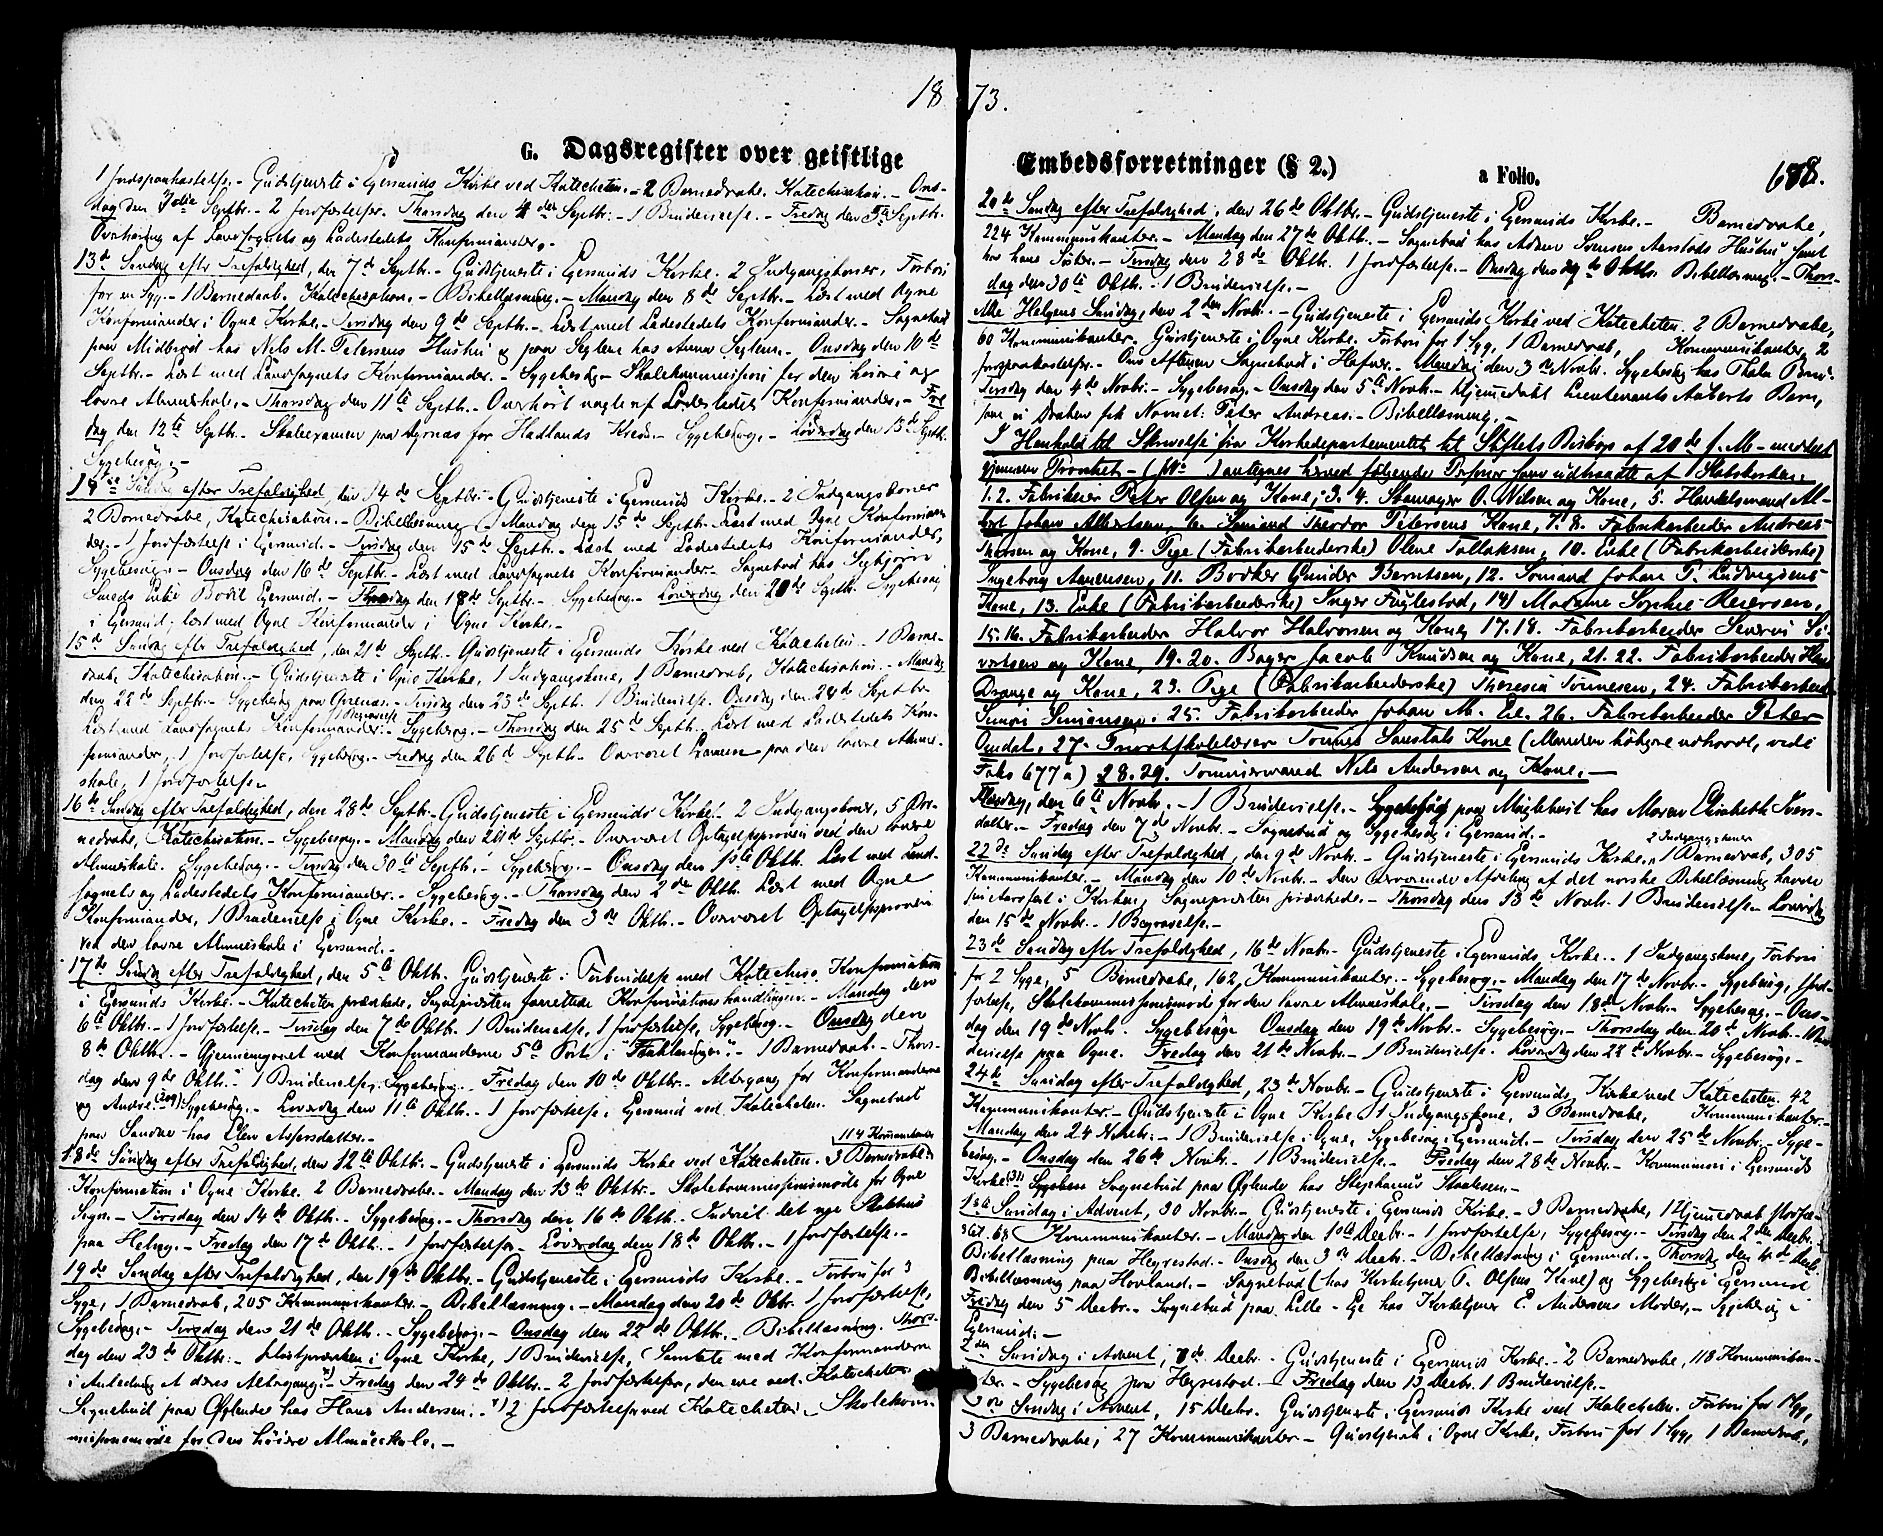 18 73.
G. Dagsregister over geistlige Embedsforretninger (§ 2.) a Folio. 678.
1 Jordpaakastelse. - Gudstjeneste i Egersunds Kirke ved Katecheten. - 2 Barnedaabe. Katechisation. - Ons-
dag den Septbr. - 2 Jordfæstelser. Thorsdag den 4de Septbr. - 1 Brudevielse. - Fredag den 5te Septbr.
af Landsognets og Ladestedets Konfirmander.
13de Søndag efter Trefoldighed, den 7de Septbr. - Gudstjeneste i Egersunds Kirke. 2 Indgangskoner, Forbøn
for en Syg. - 1 Barnedaab. Katechisation. - Bibellæsning. - Mandag den 8de Septbr. - Læst med Ogne
Konfirmander i Ogne Kirke. - Tirsdag den 9de Septbr. - Læst med Ladestedets Konfirmander. - Sognebud
paa Midbrød hos Nils M. Petersens Hustru og paa Seglem hos Anna Seglem. - Onsdag den 10de
Septbr. - Læst med Landsognets Konfirmander. - Sygebesøg - Skolekommission for den høiere og
lavere Almueskole. - Thorsdag den 11te Septbr. - Overhørt nogle af Ladestedets Konfirmander. - Fre
dag den 12te Septbr. - Skoleexamen paa for Hadlands Kreds. - Sygebesøg. - Løverdag den 13de Septbr.
Sygebesøg. -
14de Søndag efter Trefoldighed, den 14de Septbr. - Gudstjeneste i Egersunds Kirke. - 2 Indgangskoner
2 Barnedaabe, Katechisation. - Bibellæsning. - Mandag den 15de Septbr. Læst med Ogne Konfirman
der. - 1 Jordfæstelse i Egersund. - Tirsdag den 15de Septbr. - Læst med Ladestedets Konfirmander,
Sygebesøg. - Onsdag den 16de Septbr. - Læst med Landsognets Konfirmander. - Sognebud hos
Smeds Enke Bodil Egersund. - Thorsdag den 18de Septbr. - Sygebesøg. - Løverdag den 20de Septbr. Sygebesøg
i Egersund, læst med Ogne Konfirmander i Ogne Kirke. -
15de Søndag efter Trefoldighed, den 21de Septbr. - Gudstjeneste i Egersunds Kirke ved Katecheten. - 1 Barne-
daab, Katechisation. - Gudstjeneste i Ogne Kirke, 1 Indgangskone, 1 Barnedaab, Katechisation. - Mandag
den 22de Septbr. - Sygebesøg paa - Tirsdag den 23de Septbr. 1 Brudevielse. Onsdag den 24de Septbr.
Læst med Landsognets Konfirmander. - Sygebesøg. - Thorsdag den 25de Septbr. Læst med Ladestedets Kon-
firmander, 1 Jordfæstelse, Sygebesøg. - Fredag den 26de Septbr. - Overværet Examen paa den lavere Almue-
skole, 1 Jordfæstelse. -
16de Søndag efter Trefoldighed, den 28de Septbr. - Gudstjeneste i Egersunds Kirke. - 2 Indgangskoner, 5 Bar-
nedaabe, Katechisation. - Sygebesøg. - Mandag den 29de Septbr. - Overværet Optagelsesprøven ved den lavere
Almueskole. Sygebesøg. - Tirsdag den 30te Septbr. - Sygebesøg. - Onsdag den 1ste Oktbr. Læst med Land-
sognets og Ladestedets Konfirmander. - Sygebesøg. - Thorsdag den 2den Oktbr. Læst med Ogne
Konfirmander, 1 Brudevielse i Ogne Kirke. - Fredag den 3die Oktbr. - Overværet Optagelsesprøven
ved den lavere Almueskole i Egersund. -
17de Søndag efter Trefoldighed, den 5te Oktbr. Gudstjeneste i Forbindelse med Konfirmation
i Egersunds Kirke. - Katecheten prædikede, Sognepræsten forrettede Konfirmationshandlingen. - Mandag den
6te Oktbr. - 1 Jordfæstelse. - Tirsdag den 7de Oktbr. 1 Brudevielse, 1 Jordfæstelse, Sygebesøg. - Onsdag den
8de Oktbr. - Gjennemgaaet med Konfirmanderne 5te Part i - 1 Barnedaab. - Thors-
dag den 9de Oktbr. - 1 Brudevielse, Sygebesøg. - Fredag den 10de Oktbr. - Altergang for Konfirmanderne
og Andre. Sygebesøg. - Løverdag den 11te Oktbr. - 1 Jordfæstelse i Egersund ved Katecheten. Sognebud
paa hos Elen Aspersdatter. -
114 Kommunikanter
18de Søndag efter Trefoldighed, den 12te Oktbr. - Gudstjeneste i Egersunds Kirke ved Katecheten. 3 Barnedaabe.
Konfirmation i Ogne Kirke. 2 Barnedaabe. - Mandag den 13de Oktbr. - Skolekommissionsmøde for Ogne
Sogn. - Tirsdag den 14de Oktbr. - Sygebesøg. - Thorsdag den 16de Oktbr. Indviet det nye Skolehus
paa - Fredag den 17de Oktbr. - 1 Jordfæstelse. - Løverdag den 18de Oktbr. - 1 Jordfæstelse. -
19de Søndag efter Trefoldighed, den 19de Oktbr. - Gudstjeneste i Egersunds Kirke. - Forbøn for 3
Syge, 1 Barnedaab, 205 Kommunikanter. - Bibellæsning. - Mandag den 20de Oktbr. 1 Jordfæstelse,
Sygebesøg. - Tirsdag den 21de Oktbr. - Sygebesøg. - Onsdag den 22de Oktbr. - Bibellæsning. Thors-
dag den 23de Oktbr. - i Ogne Kirke, 1 Brudevielse, Samtale med Konfirmanderne
i Anledning af deres Altergang. - Fredag den 24de Oktbr. - 2 Jordfæstelser, den ene ved Katecheten
Sognebud paa Øglende hos Hans Andersen. - 2 Jordfæstelser ved Katecheten. - Skolekom-
missionsmøde for den høiere Almueskole. -
20de Søndag efter Trefoldighed, den 26de Oktbr. - Gudstjeneste i Egersunds Kirke. - Barnedaabe,
224 Kommunikanter. - Mandag den 27de Oktbr. - Sognebud hos Sørensen Aarstads Hustru samt
hos hans - Tirsdag den 28de Oktbr. 1 Jordfæstelse. - Onsdag den 29de Oktbr. Bibellæsning. - Thors-
dag den 30te Oktbr. 1 Brudevielse. -
Alle Helgens Søndag, den 2den Novbr. - Gudstjeneste i Egersunds Kirke ved Katecheten. 2 Barnedaabe,
60 Kommunikanter. Gudstjeneste i Ogne Kirke. Forbøn for 1 Syg, 1 Barnedaab, Kommunikanter, 2
Jordpaakastelser. - Om Aftenen Sognebud i Hafner. - Mandag den 3die Novbr. Sygebesøg hos
Tirsdag den 4de Novbr. - Sygebesøg. - Onsdag den 5te Novbr. - Hjemmedøbt Lieutenant Aaberts Barn,
som i Daaben fik Navnet: Peter Andreas. - Bibellæsning. -
I Henhold til Skrivelse fra Kirkedepartementet til Stiftets Biskop af 20de f. M. - meddelt
gjennem Provstiet - (No ) antegnes herved følgende Personer som udtraadte af Statskirken:
1. 2. Fabrikeier Peter Olsen og Kone, 3. 4. Skomager O. Nilsen og Kone, 5. Handelsmand Al-
bert Johan Albertsen, 6. Sømand Theodor Petersens Kone, 7. 8. Fabrikarbeider Andreas
Thorsen og Kone, 9. Pige (Fabrikarbeiderske) Olene Tollaksen, 10. Enke (Fabrikarbeiderske)
Ingeborg Aanensen, 11. Bødker Gunder Berntsen, 12. Sømand Johan P. Ludvigsens
Kone, 13. Enke (Fabrikarbeiderske) Inger Fuglestad, 14) Madame Sophie Reiersen,
15. 16. Fabrikarbeider Halvor Halvorsen og Kone, 17. 18. Fabrikarbeider Severin Si-
vertsen og Kone, 19. 20. Bager Jacob Knudsen og Kone, 21. 22. Fabrikarbeider
Drange og Kone, 23. Pige (Fabrikarbeiderske) Theresia Tønnesen, 24. Fabrikarbeider
Simon Simonsen, 25. Fabrikarbeider Johan M. 26. Fabrikarbeider Peter
Omdal, 27. Tønnes Kone (Manden tidligere udtraadt, vide
Folio 677 a) 28. 29. Tømmermand Nils Andersen og Kone. -
Thorsdag, den 6te Novbr. - 1 Brudevielse. - Sygebesøg paa hos Maren Elisabeth Svens-
datter. - Fredag den 7de Novbr. - Sognebud og Sygebesøg i Egersund. -
2 Indgangskoner
22de Søndag efter Trefoldighed, den 9de Novbr. - Gudstjeneste i Egersunds Kirke. 1 Barnedaab, 305
Kommunikanter. - Mandag den 10de Novbr. - Den herværende Afdeling af det norske havde
i Kirken, Sognepræsten prædikede. - Thorsdag den 13de Novbr. 1 Brudevielse. Løverdag
den 15de Novbr. - 1 Begravelse. -
23de Søndag efter Trefoldighed, 16de Novbr. - Gudstjeneste i Egersunds Kirke. - 1 Indgangskone, Forbøn
for 2 Syge, 5 Barnedaabe, 162 Kommunikanter. - Sygebesøg. - Mandag den 17de Novbr. - Sygebesøg, 1 Jord-
fæstelse, Skolekommissionsmøde for den lavere Almueskole. - Tirsdag den 18de Novbr. - Sygebesøg. - Ons-
dag den 19de Novbr. Sygebesøg. Onsdag den 19de Novbr. - Sygebesøg. - Thorsdag den 20de Novbr. - 1 Bru-
devielse paa Ogne. Fredag den 21de Novbr. - 1 Brudevielse. Løverdag den 22de Novbr. - Sygebesøg. -
24de Søndag efter Trefoldighed, 23de Novbr. - Gudstjeneste i Egersunds Kirke ved Katecheten. 42
Kommunikanter. - Gudstjeneste i Ogne Kirke, 1 Indgangskone, 3 Barnedaabe, Kommunikanter. -
Mandag den 24 Novbr. - 1 Brudevielse i Ogne, Sygebesøg i Egersund. - Tirsdag den 25de Novbr. - Syge-
besøg. - Onsdag den 26de Novbr. - 1 Brudevielse. - Fredag den 28de Novbr. - Kommunion i Egersunds
Kirke (31) Sognebud paa Øglende hos Stephanus -
1ste Søndag i Advent, 30 Novbr. - Gudstjeneste i Egersunds Kirke. - 3 Barnedaabe, 1 Hjemmedaab
68 Kommunikanter. - Mandag den 1ste Decbr. - 1 Jordfæstelse, Sygebesøg. - Tirsdag den 2den Decbr.
Bibellæsning paa Hegrestad. - Onsdag den 3die Decbr. - Bibellæsning i Egersund. - Thorsdag den 4de Decbr.
Bibellæsning paa Hovland. - Sognebud (hos Kirketjener P. Olsens Kone) og Sygebesøg i Egersund
Fredag den 5 Decbr. - Sognebud paa Lille-Ege hos Kirketjener E. Andersens Moder. - Sygebesøg i
Egersund. -
2den Søndag i Advent, 7de Decbr. - Gudstjeneste i Egersunds Kirke. - 2 Barnedaabe, 118 Kommunikan-
ter. - Sygebesøg paa Hegrestad. - Fredag den 13 Decbr. 1 Brudevielse. -
3die Søndag i Advent, 15 Decbr. Gudstjeneste i Egersunds Kirke ved Katecheten. Forbøn for 1 Syg,
3 Barnedaabe, 27 Kommunikanter. - Gudstjeneste i Ogne Kirke, Forbøn for 1 Syg, 1 Barnedaab,